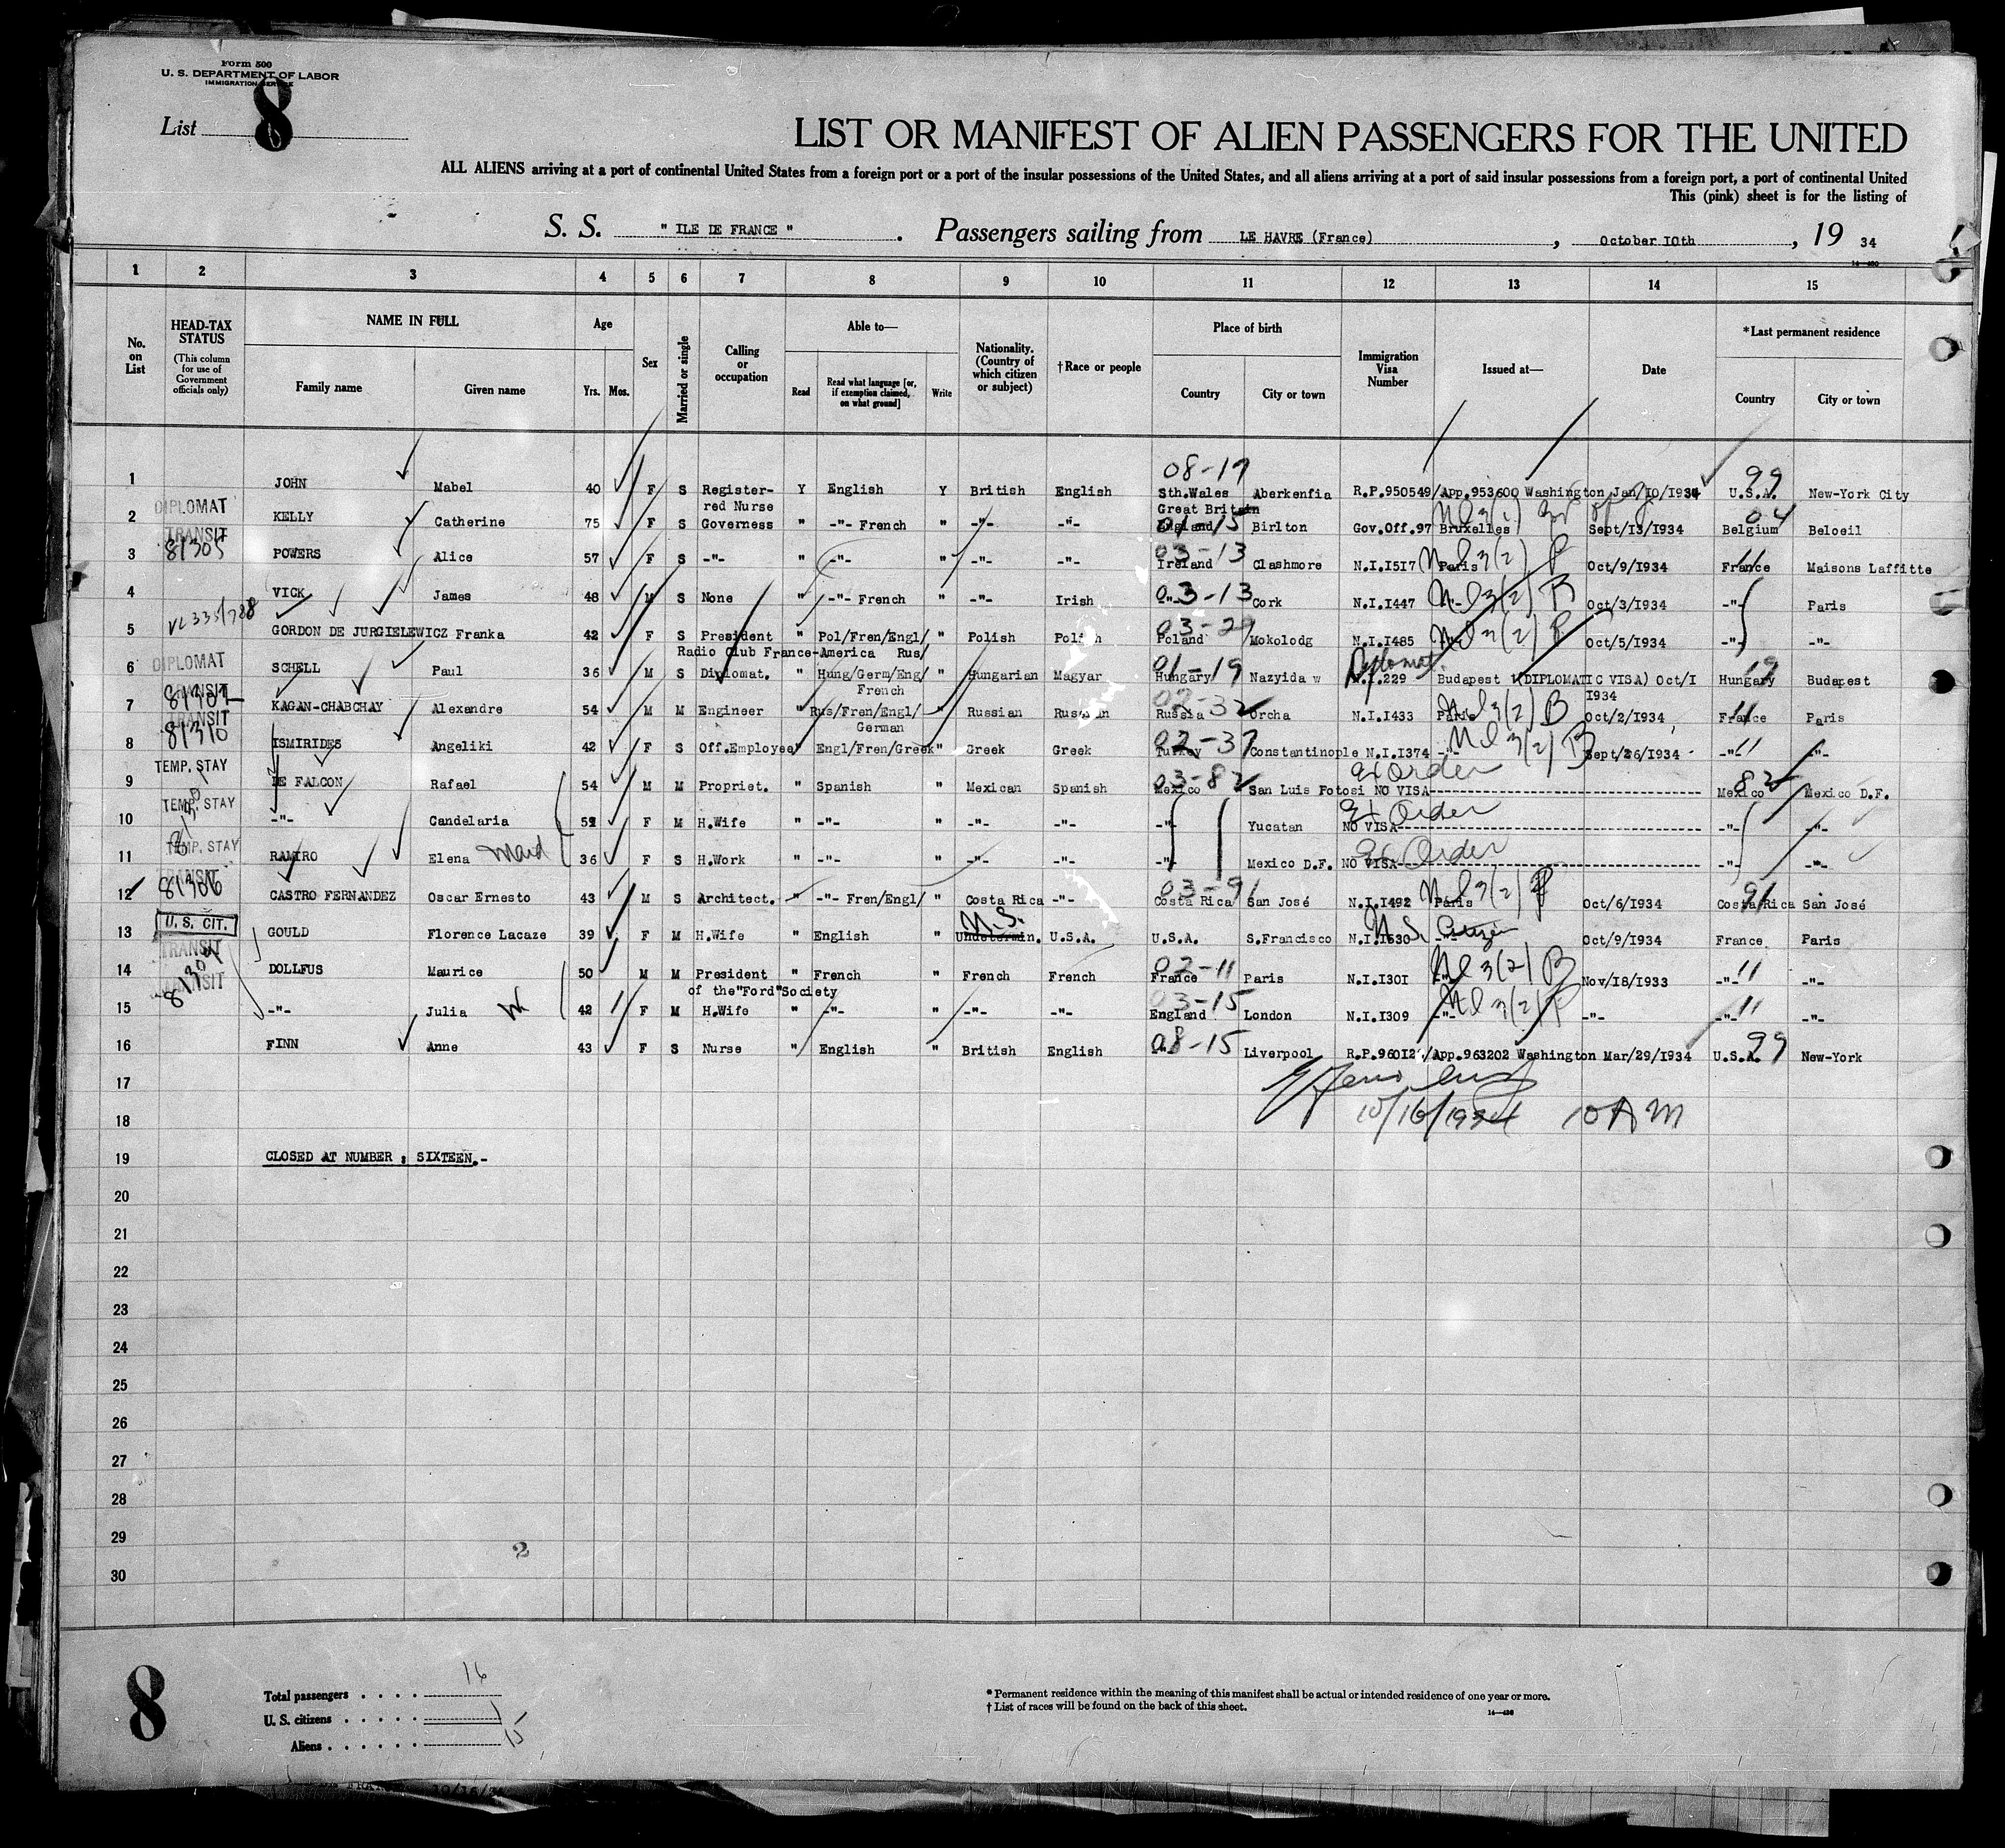 Form 500
U. S. DEPARTMENT OF LABOR
IMMIGRATION SERVICE
List 8
LIST OR MANIFEST OF ALIEN PASSENGERS FOR THE UNITED
ALL ALIENS arriving at a port of continental United States from a foreign port or a port of the insular possessions of the United States, and all aliens arriving at a port of said insular possessions from a foreign port, a port of continental United
This (pink) sheet is for the listing of
S. S. " ILE DE FRANCE " . Passengers sailing from LE HAVRE (France) , October I0th , 19 34
1 2 3 4 5 6 7 8 9 10 11 12 13 14 15
No. on List
HEAD-TAX STATUS (This column for use of Government officials only)
NAME IN FULL Family name Given name
Age Yrs. Mos.
Sex
Married or single
Calling or occupation
Able to— Read Read what language [or, if exemption claimed, on what ground] Write
Nationality. (Country of which citizen or subject)
†Race or people
Place of birth Country City or town
Immigration Visa Number
Issued at—
Date
*Last permanent residence Country City or town
08-17 99
1 JOHN Mabel 40 F S Register- Y English Y British English Sth.Wales Aberkenfia R.P.950549/App.953600 Washington Jan/I0/I934 U.S.A. New-York City
red Nurse Great Britain
2 DIPLOMAT KELLY Catherine 75 F S Governess " -"- French " -"- -"- England 01-15 Birlton Gov.Off.97 Bruxelles Sept/I3/I934 Belgium 04 Beloeil
3 TRANSIT 81305 POWERS Alice 57 F S -"- " -"- " -"- -"- Ireland 03-13 Clashmore N.I.I5I7 Paris Nl 3(2) P Oct/9/I934 France 11 Maisons Laffitte
4 VICK James 48 M S None " -"- French " -"- Irish -"- 03-13 Cork N.I.I447 -"- Nl 3(2) B Oct/3/I934 -"- Paris
5 GORDON DE JURGIELEWICZ Franka 42 F S President " Pol/Fren/Engl/ " Polish Polish Poland Mokolodg N.I.I485 -"- Nl 3(2) P Oct/5/I934 -"- -"-
Radio Club France-America Rus/
6 DIPLOMAT SCHELL Paul 36 M S Diplomat. " Hung/Germ/Eng/ " Hungarian Magyar Hungary 01-19 Nazyida w Diplomat. N.I.229 Budapest (DIPLOMATIC VISA) Oct/I Hungary 19 Budapest
French I934
7 TRANSIT KAGAN-CHABCHAY Alexandre 54 M M Engineer " Rus/Fren/Engl/ " Russian Russian Russia 02-32 Orcha N.I.I433 Paris Nl 3(2) B Oct/2/I934 France 11 Paris
German
8 TRANSIT 81310 ISMIRIDES Angeliki 42 F S Off.Employee " Engl/Fren/Greek " Greek Greek Turkey 02-37 Constantinople N.I.I374 -"- Nl 3(2) B Sept/26/I934 -"- 11 -"-
9 TEMP. STAY DE FALCON Rafael 54 M M Propriet. " Spanish " Mexican Spanish Mexico 03-82 San Luis Potosi NO VISA Ex Order Mexico 82 Mexico D.F.
10 TEMP. STAY -"- Candelaria 52 F M H.Wife " -"- " -"- -"- -"- Yucatan NO VISA Ex Order -"- -"-
11 TEMP. STAY RAMIRO Elena Maid 36 F S H.Work " -"- " -"- -"- -"- Mexico D.F. NO VISA Ex Order -"- -"-
12 TRANSIT 81306 CASTRO FERNANDEZ Oscar Ernesto 43 M S Architect. " -"- Fren/Engl/ " Costa Rica -"- Costa Rica 03-91 San José N.I.I492 Paris Nl 3(2) P Oct/6/I934 Costa Rica 91 San José
13 U. S. CIT. GOULD Florence Lacaze 39 F M H.Wife " English " U.S. Undetermin. U.S.A. U.S.A. S.Francisco N.I.I530 -"- U.S. Citizen Oct/9/I934 France Paris
14 TRANSIT DOLLFUS Maurice 50 M M President " French " French French France 02-11 Paris N.I.I30I -"- Nl 3(2) B Nov/I8/I933 -"- 11 -"-
of the"Ford"Society
15 TRANSIT -"- Julia W 42 F M H.Wife " -"- " -"- -"- England 03-15 London N.I.I309 -"- Nl 3(2) P -"- -"- 11 -"-
16 FINN Anne 43 F S Nurse " English " British English -"- 08-15 Liverpool R.P.96012 /App.963202 Washington Mar/29/I934 U.S.A. 99 New-York
17
10/16/1934 10 AM
18
19 CLOSED AT NUMBER : SIXTEEN.-
20
21
22
23
24
25
26
27
28
29
2
30
8
Total passengers . . . . 16
U. S. citizens . . . . . 1
Aliens . . . . . . 15
* Permanent residence within the meaning of this manifest shall be actual or intended residence of one year or more.
† List of races will be found on the back of this sheet.